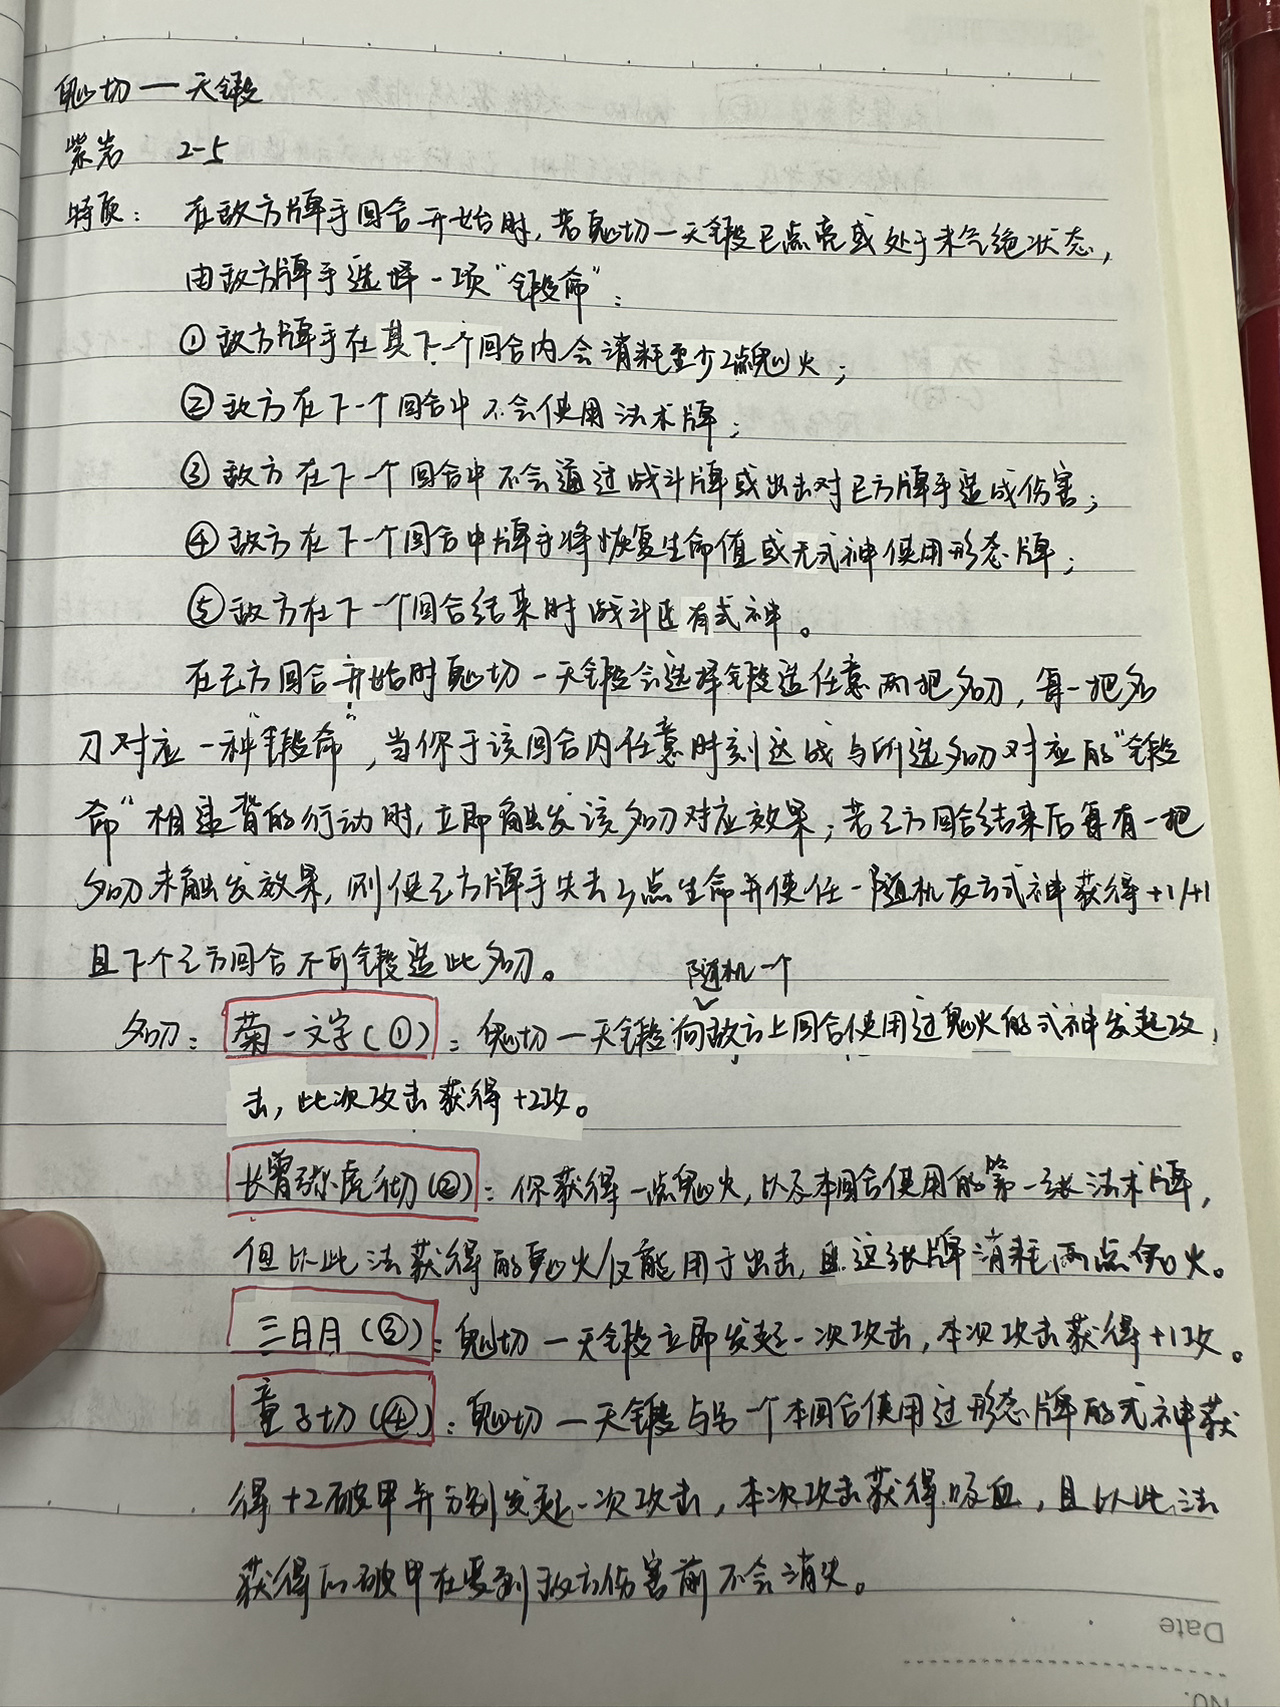 鬼切一天锻
紫岩 2-5
特质: 在敌方牌手回合开始时,若鬼切一天锻已点亮或处于未气绝状态,
由敌方牌手选择一项“锻命”:
①敌方牌手在其下一个回合内会消耗至少2点鬼火;
②敌方在下一个回合中不会使用法术牌;
③敌方在下一个回合中不会通过战斗牌或出击对己方牌手造成伤害;
④敌方在下一个回合中牌手将恢复生命值或无式神使用形态牌;
⑤敌方在下一个回合结束时战斗区有式神。
在己方回合开始时鬼切一天锻会选择锻造任意两把名刀,每一把名
刀对应一种“锻命”,当你于该回合内任意时刻达成与所选名刀对应的“锻
命”相违背的行动时,立即触发该名刀对应效果;若己方回合结束后每有一把
名刀未触发效果,则使己方牌手失去3点生命并使任一随机友方式神获得+1/+1
且下个己方回合不可锻造此名刀。
随机一个
名刀: 菊一文字(①): 鬼切一天锻向敌方上回合使用过鬼火的式神发起攻
击,此次攻击获得+2攻。
长曾弥虎彻(②): 你获得一点鬼火,以及本回合使用的第一张法术牌,
但以此法获得的鬼火仅能用于出击,且这张牌消耗两点鬼火。
三日月(③): 鬼切一天锻立即发起一次攻击,本次攻击获得+1攻。
童子切(④): 鬼切一天锻与另一个本回合使用过形态牌的式神获
得+2破甲并分别发起一次攻击,本次攻击获得吸血,且以此法
获得的破甲在受到敌方伤害前不会消失。
Date
No.